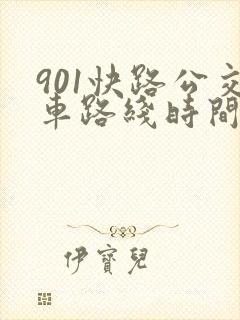 901快路公交
車路綫時間
伊寶兒